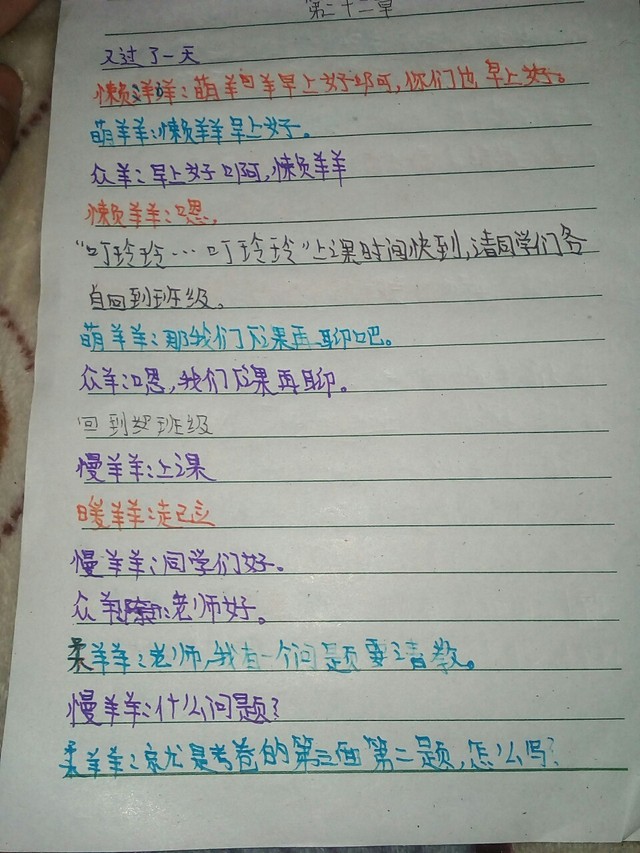 第二十二章
又过了一天
懒羊羊:萌羊羊早上好啊,你们也早上好。
萌羊羊:懒羊羊早上好。
众羊:早上好啊,懒羊羊
懒羊羊:嗯,
“叮玲玲…叮玲玲”上课时间快到,请同学们各
自回到班级。
萌羊羊:那我们下课再聊吧。
众羊:嗯,我们下课再聊。
回到班级
慢羊羊:上课
暖羊羊:起立
慢羊羊:同学们好。
众羊:老师好。
柔羊羊:老师,我有一个问题要请教。
慢羊羊:什么问题?
柔羊羊:就是考卷的第三面第二题,怎么写?